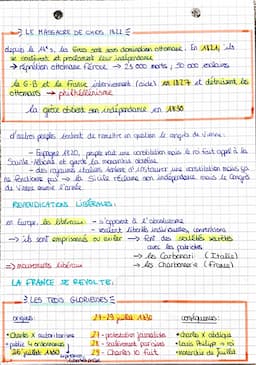 LE MASSACRE DE CHIOS 1822
depuis le 14ᵉs, la Grèce est sous domination ottomane. En 1821, ils
se soulèvent et proclament leur indépendance
→ répression ottomane féroce → 25 000 morts, 50 000 esclaves
la G-B et la France interviennent (aide) en 1827 et détruisent les
ottomans → philhellénisme
la grèce obtient son indépendance en 1830
d'autres peuples tentent de remettre en question le congrès de Vienne:
- Espagne 1820, peuple veut une constitution mais le roi fait appel à la
Sainte-Alliance et garde la monarchie absolue
- des royaumes italiens tentent d'instaurer une constitution mais
la Sicile réclame son indépendance mais le congrès
de Vienne envoie l'armée
REVENDICATIONS LIBÉRALES:
en Europe, les libéraux - s'opposent à l'absolutisme
- veulent libertés individuelles, constitution
→ ils sont emprisonnés ou exilés → font des sociétés secrètes
avec les patriotes
→ les Carbonari (Italie)
→ mouvements libéraux → la Charbonnerie (France)
LA FRANCE SE RÉVOLTE:
LES TROIS GLORIEUSES
origines: 27-29 juillet 1830 conséquences:
• Charles X autoritarisme 27 - protestation journalistes • charles X abdique
• publie 4 ordonnances 28 - soulèvement parisiens • Louis Philippe → roi
26 juillet 1830 29 - Charles X fuit • monarchie de Juillet